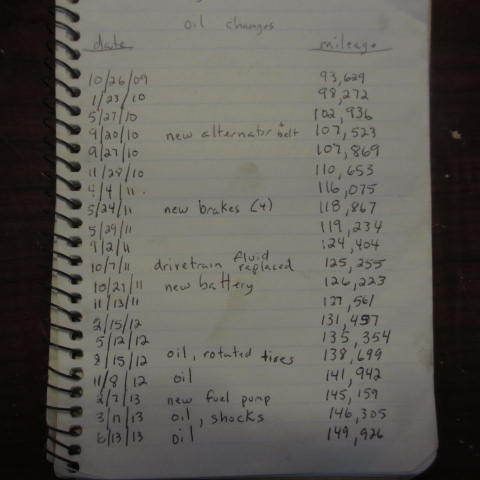 oil changes
date mileage
10/26/09 93,629
1/23/10 98,272
5/27/10 102,936
9/20/10 new alternator + belt 107,523
9/27/10 107,869
11/28/10 110,653
4/4/11. 116,075
5/24/11 new brakes (4) 118,867
5/29/11 119,234
9/2/11 124,404
10/7/11 drivetrain fluid replaced 125,255
10/27/11 new battery 126,223
11/13/11 127,561
2/15/12 131,457
5/12/12 135,354
8/15/12 oil, rotated tires 138,699
11/8/12 oil 141,942
2/7/13 new fuel pump 145,159
3/17/13 oil, shocks 146,305
6/13/13 oil 149,926